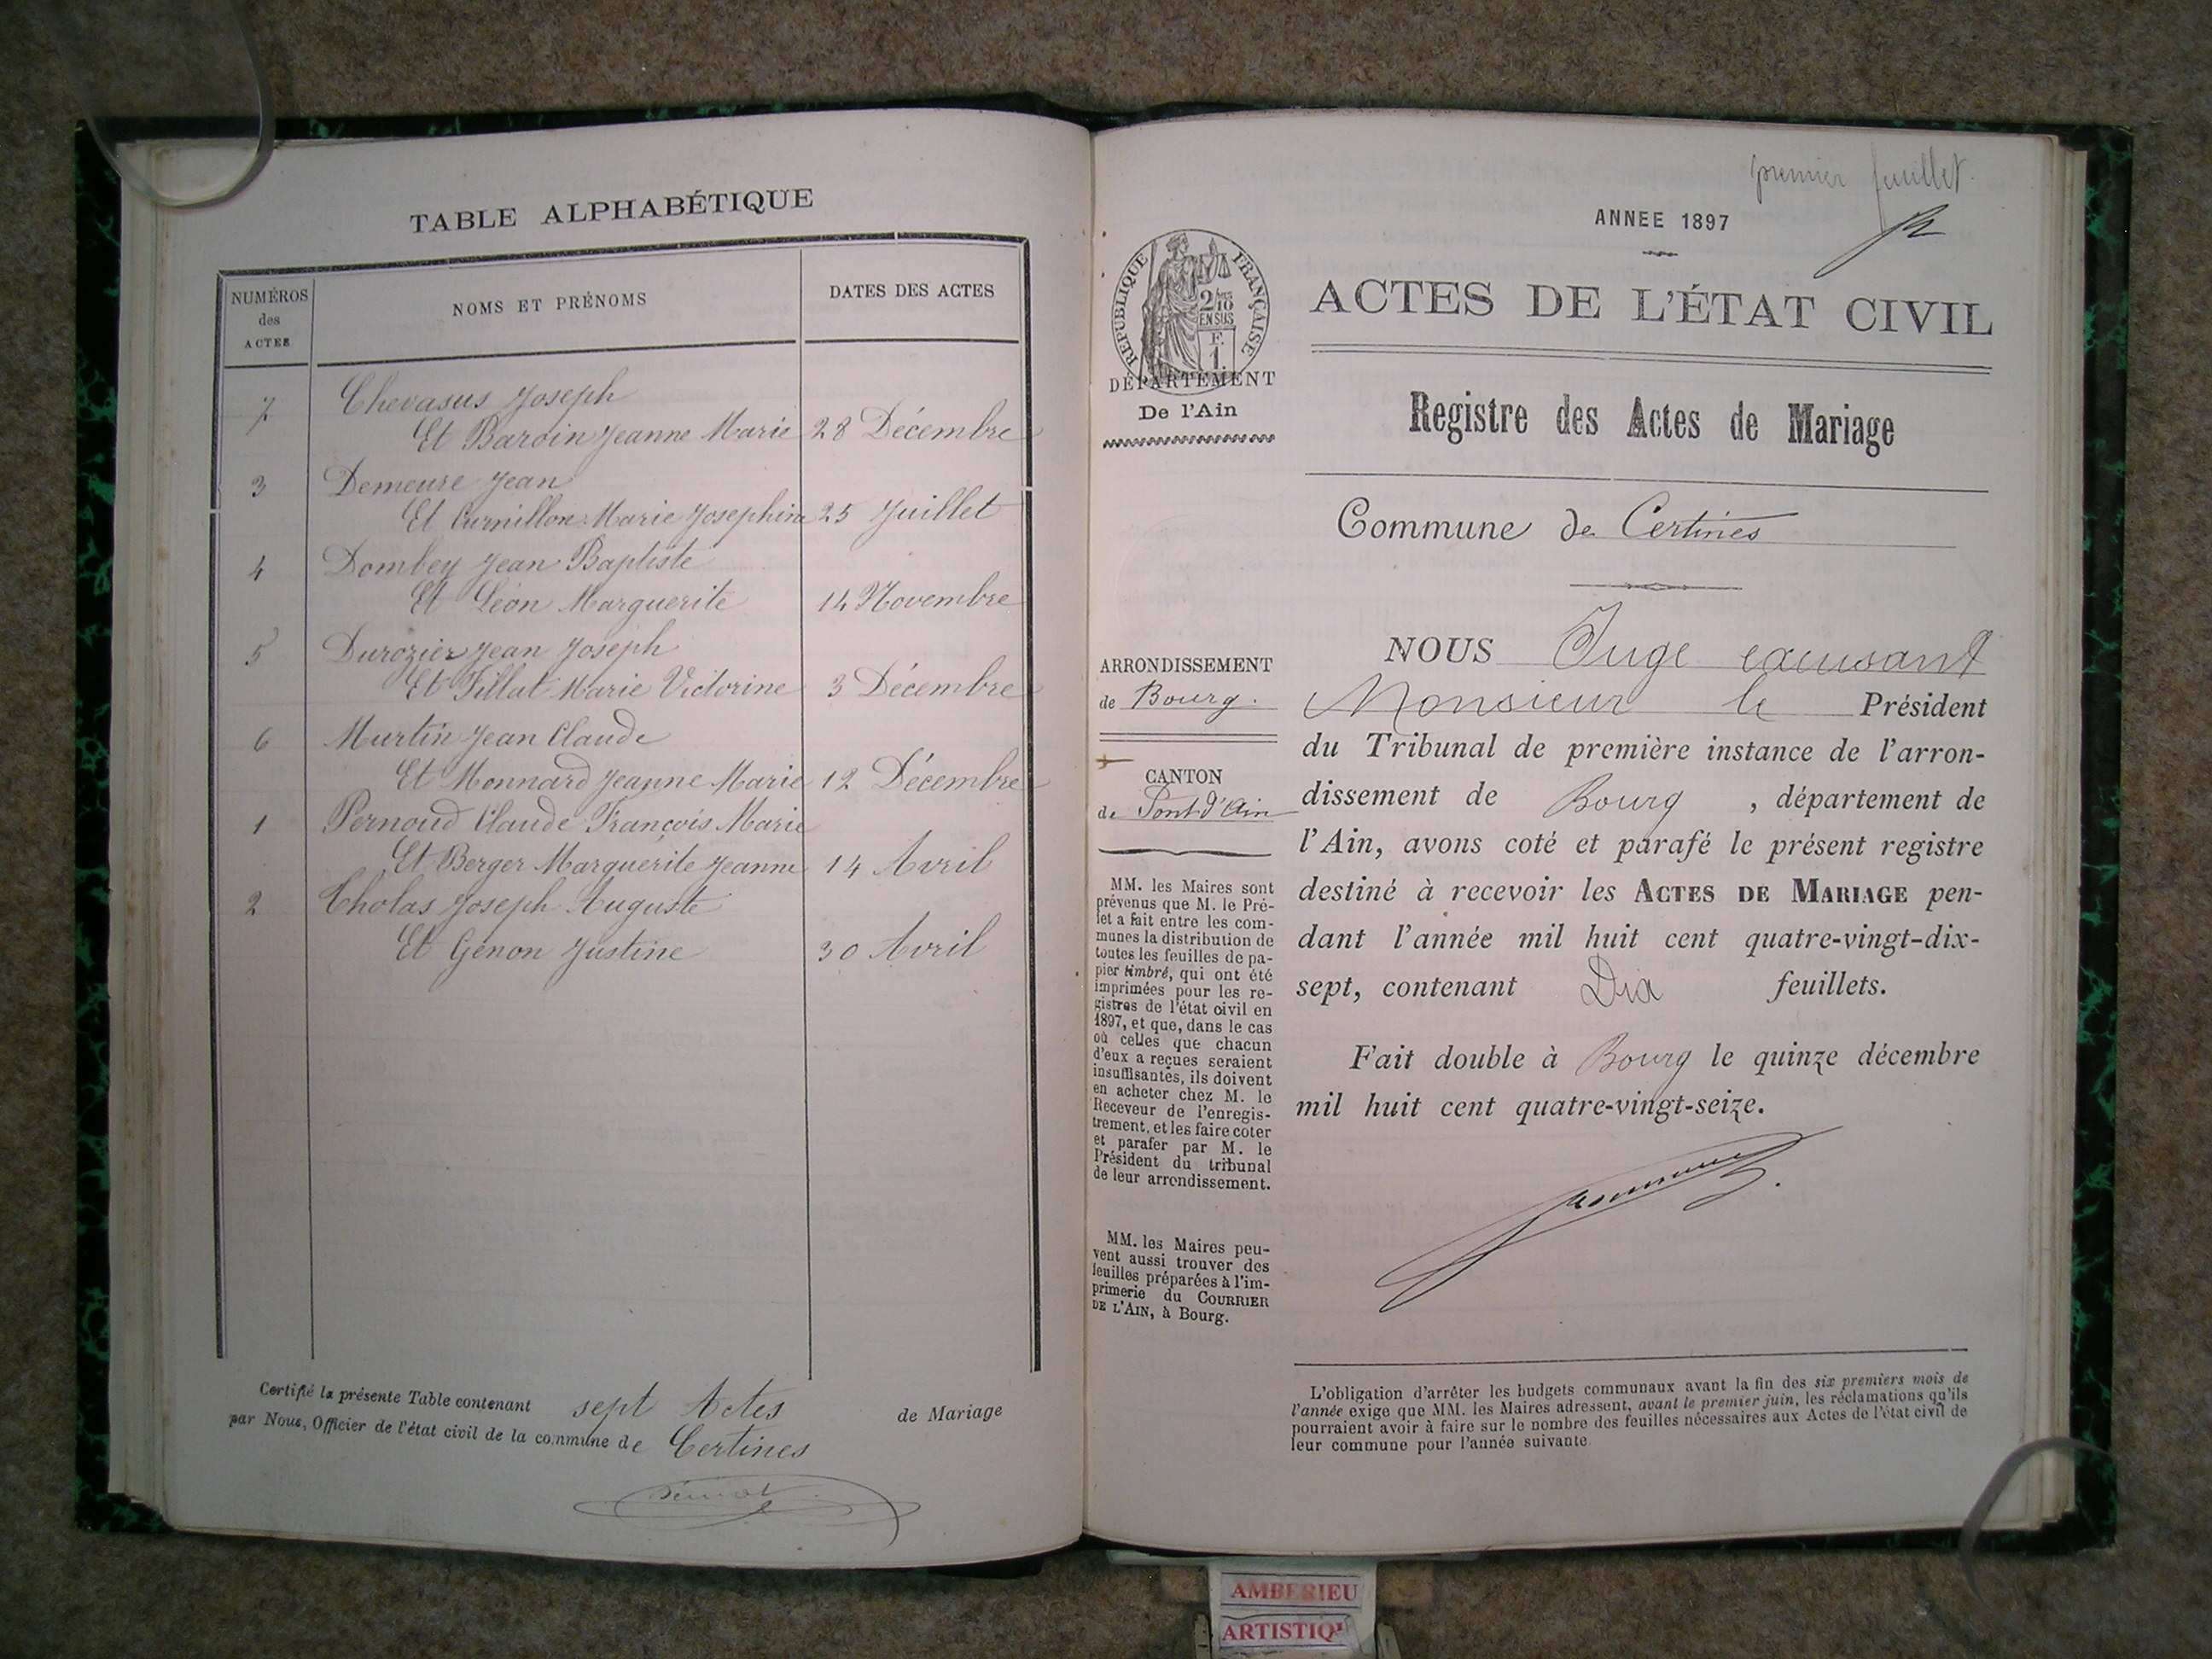 TABLE ALPHABÉTIQUE
NUMÉROS
des
ACTES
NOMS ET PRÉNOMS
DATES DES ACTES
7 Chevasus Joseph
Et Baroin Jeanne Marie 28 Décembre
3 Demeure Jean
Et Curnillon Marie Josephine 25 Juillet
4 Dombey Jean Baptiste
Et Léon Marguerite 14 Novembre
5 Durozier Jean Joseph
Et Fillat Marie Victorine 3 Décembre
6 Murtin Jean Claude
Et Monnard Jeanne Marie 12 Décembre
1 Pernoud Claude François Marie
Et Berger Marguerite Jeanne 14 Avril
2 Cholas Joseph Auguste
Et Génon Justine 30 Avril
Certifié la présente Table contenant sept Actes de Mariage
par Nous, Officier de l'état civil de la commune de Certines
premier feuillet
ANNEE 1897
RÉPUBLIQUE FRANÇAISE
2/10
EN SUS
F.
1.
DÉPARTEMENT
De l'Ain
ACTES DE L'ÉTAT CIVIL
Registre des Actes de Mariage
Commune de Certines
ARRONDISSEMENT
de Bourg.
CANTON
de Pont d'Ain
MM. les Maires sont
prévenus que M. le Pré-
fet a fait entre les com-
munes la distribution de
toutes les feuilles de pa-
pier timbré, qui ont été
imprimées pour les re-
gistres de l'état civil en
1897, et que, dans le cas
où celles que chacun
d'eux a reçues seraient
insuffisantes, ils doivent
en acheter chez M. le
Receveur de l'enregis-
trement, et les faire coter
et parafer par M. le
Président du tribunal
de leur arrondissement.
MM. les Maires peu-
vent aussi trouver des
feuilles préparées à l'im-
primerie du COURRIER
DE L'AIN, à Bourg.
NOUS Juge excusant
Monsieur le Président
du Tribunal de première instance de l'arron-
dissement de Bourg , département de
l'Ain, avons coté et parafé le présent registre
destiné à recevoir les ACTES DE MARIAGE pen-
dant l'année mil huit cent quatre-vingt-dix-
sept, contenant Dix feuillets.
Fait double à Bourg le quinze décembre
mil huit cent quatre-vingt-seize.
L'obligation d'arrêter les budgets communaux avant la fin des six premiers mois de
l'année exige que MM. les Maires adressent, avant le premier juin, les réclamations qu'ils
pourraient avoir à faire sur le nombre des feuilles nécessaires aux Actes de l'état civil de
leur commune pour l'année suivante.
AMBERIEU
ARTISTIQU